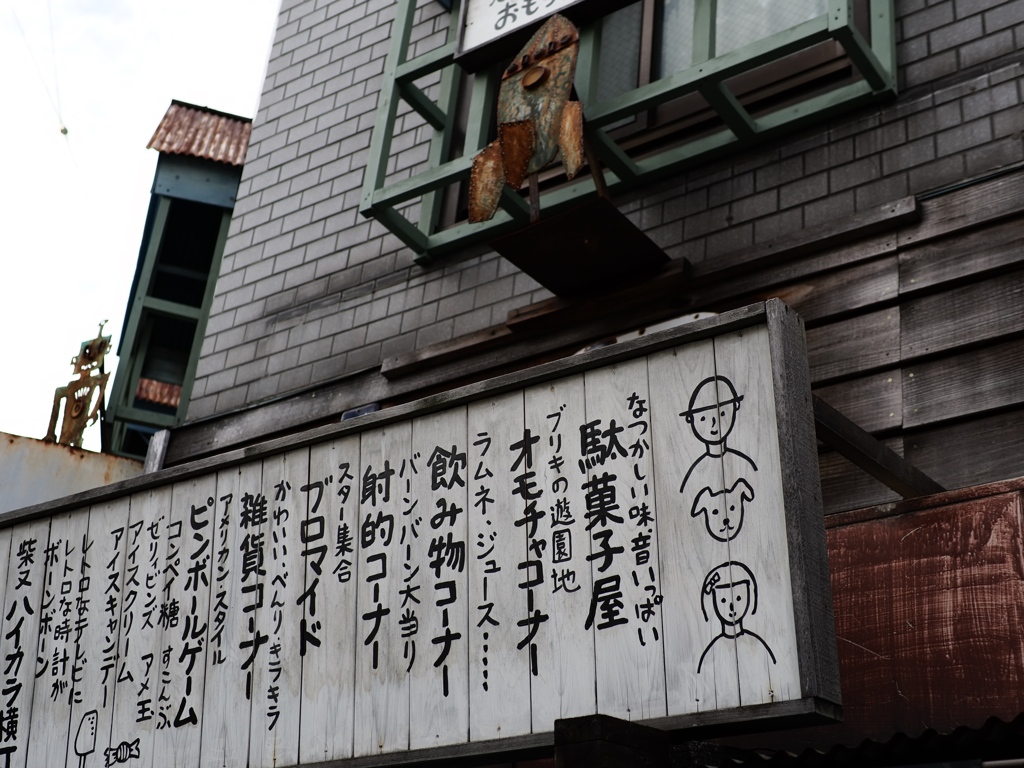 おもち
なつかしい味音いっぱい
駄菓子屋
ブリキの遊園地
オモチャコーナー
ラムネ、ジュース……
飲み物コーナー
バーンバーン大当り
射的コーナー
スター集合
ブロマイド
かわいい、べんりキラキラ
雑貨コーナー
アメリカン・スタイル
ピンボールゲーム
コンペイ糖 すこんぶ
ゼリィビンズ アメ玉
アイスクリーム
アイスキャンデー
レトロなテレビに
レトロな時計が
ボーンボーン
柴又ハイカラ横丁